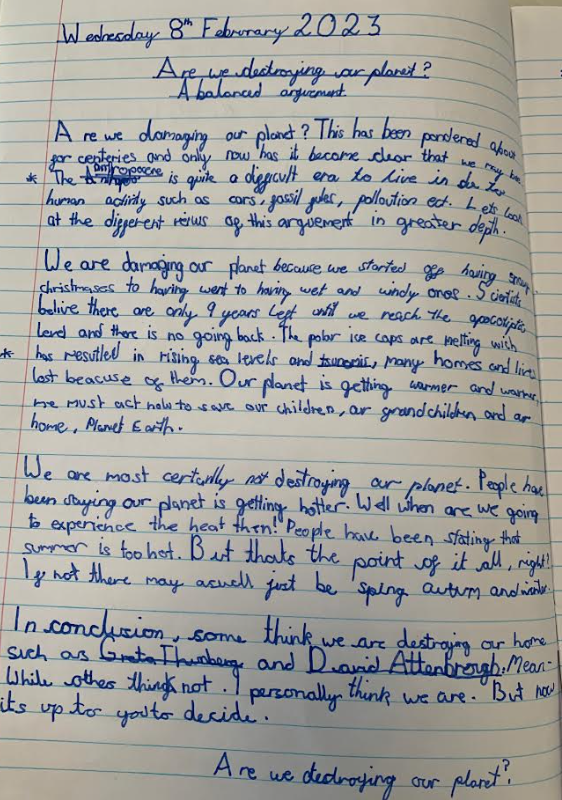 Wednesday 8th Februrary 2023
Are we destroying our planet?
A balanced arguement.
Are we damaging our planet? This has been pondered about
for centeries and only now has it become clear that we may be.
* The Anthropocene is quite a difficult era to live in due to
human activity such as cars, fossil fules, polloution ect. Lets look
at the different veiws of this arguement in greater depth.
We are damaging our planet because we started off having snowy
christmases to having went to having wet and windy ones. Scientists
belive there are only 9 years left until we reach the apocolyptic
level and there is no going back. The polar ice caps are melting wich
* has resutled in rising sea levels and tsunomis, many homes and lives
lost beacuse of them. Our planet is getting warmer and warmer,
we must act now to save our children, our grandchildren and our
home, Planet Earth.
We are most certanlly not destroying our planet. People have
been saying our planet is getting hotter. Well when are we going
to experience the heat then!" People have been stating that
summer is too hot. But thats the point of it all, right?
If not there may aswell just be sping autum and winter.
In conclusion, some think we are destroying our home
such as Greta Thunberg and David Attenbrough. Mean-
While other things not. I personally think we are. But now
its up to you to decide.
Are we destroying our planet?